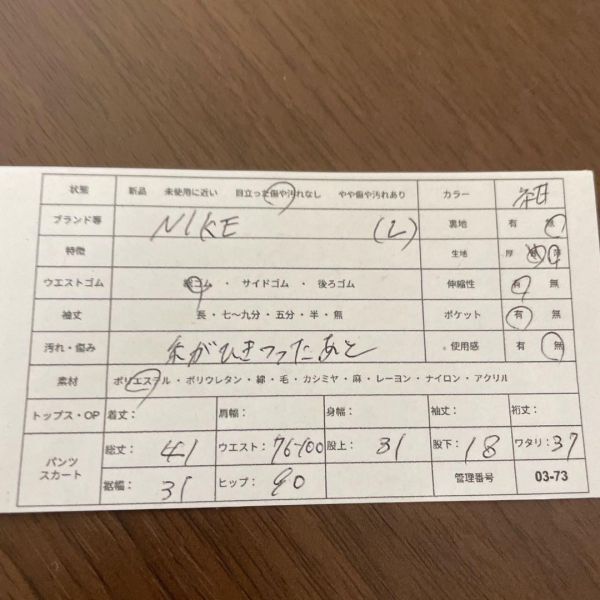 状態 新品 未使用に近い 目立った傷や汚れなし やや傷や汚れあり カラー 紺
ブランド等 NIKE (L) 裏地 有 無
特徴 生地 厚 薄
ウエストゴム 総ゴム ・ サイドゴム ・ 後ろゴム 伸縮性 有 無
袖丈 長 ・ 七〜九分 ・ 五分 ・ 半 ・ 無 ポケット 有 無
汚れ・傷み 糸がひきつったあと 使用感 有 無
素材 ポリエステル ・ ポリウレタン ・ 綿 ・ 毛 ・ カシミヤ ・ 麻 ・ レーヨン ・ ナイロン ・ アクリル
トップス・OP 着丈: 肩幅: 身幅: 袖丈: 裄丈:
パンツ スカート 総丈: 41 ウエスト: 76-100 股上: 31 股下: 18 ワタリ: 37
裾幅: 31 ヒップ: 90 管理番号 03-73